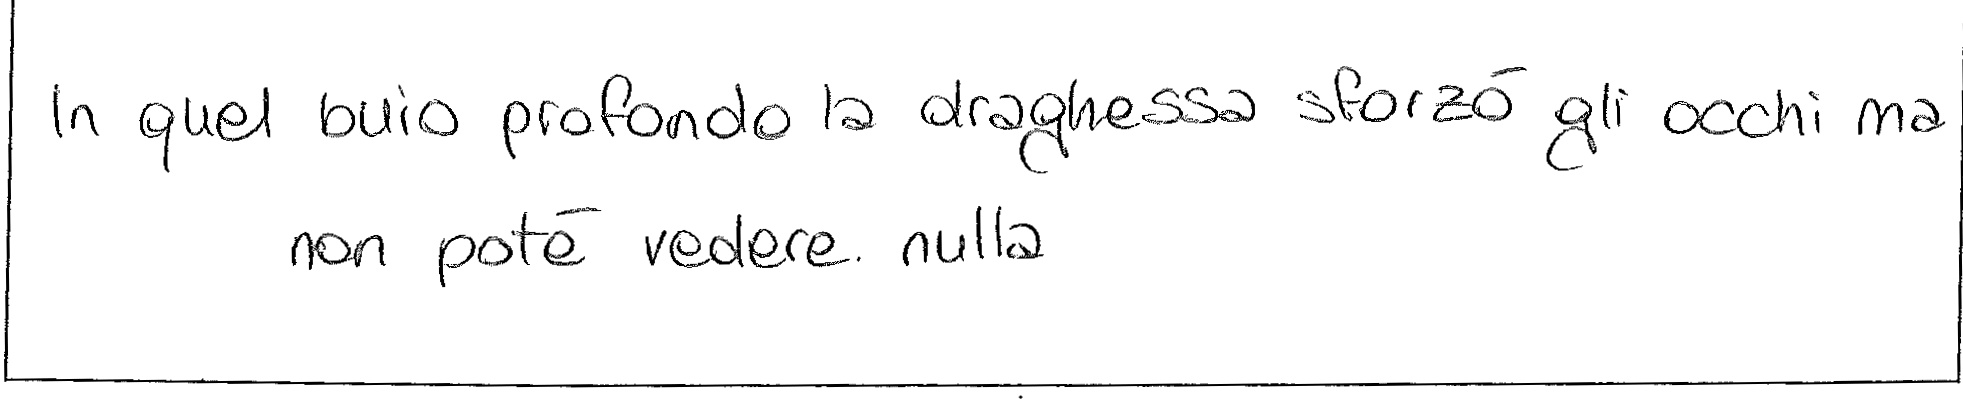 In quel buio profondo la draghessa sforzò gli occhi ma
non poté vedere. nulla